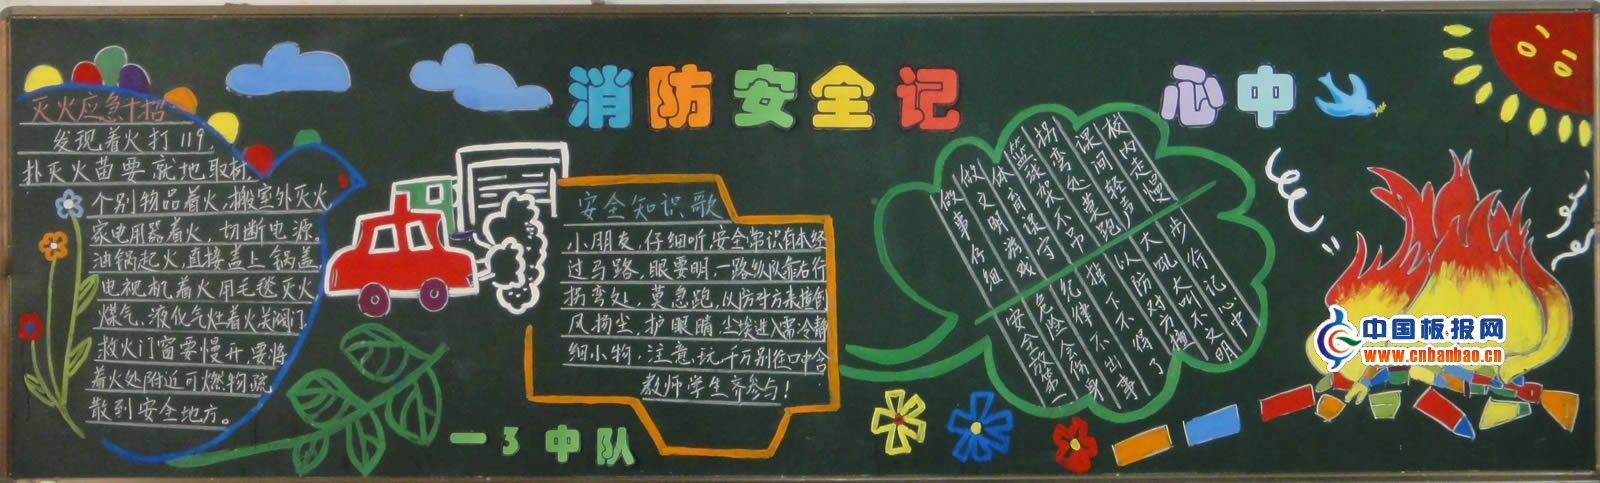 消防安全记心中
灭火应急十招
发现着火打119,
扑灭火苗要就地取材,
个别物品着火,搬室外灭火,
家电用器着火,切断电源。
油锅起火,直接盖上锅盖,
电视机着火用毛毯灭火,
煤气、液化气灶着火关阀门,
救火门窗要慢开,要将
着火处附近可燃物疏
散到安全地方。
安全知识歌
小朋友,仔细听,安全常识有本经
过马路,眼要明,一路纵队靠右行
拐弯处,莫急跑,以防对方来撞倒
风扬尘,护眼睛,尘埃进入需冷静
细小物,注意玩,千万别往口中含
教师学生齐参与!
校内走慢步行记心中
课间轻声大吼大叫不文明
拐弯处莫跑以防对方撞了
篮球架不吊
体育课守纪律不出事
做文明游戏危险会伤身
做事仔细安全放第一
一3中队
中国板报网
www.cnbanbao.cn